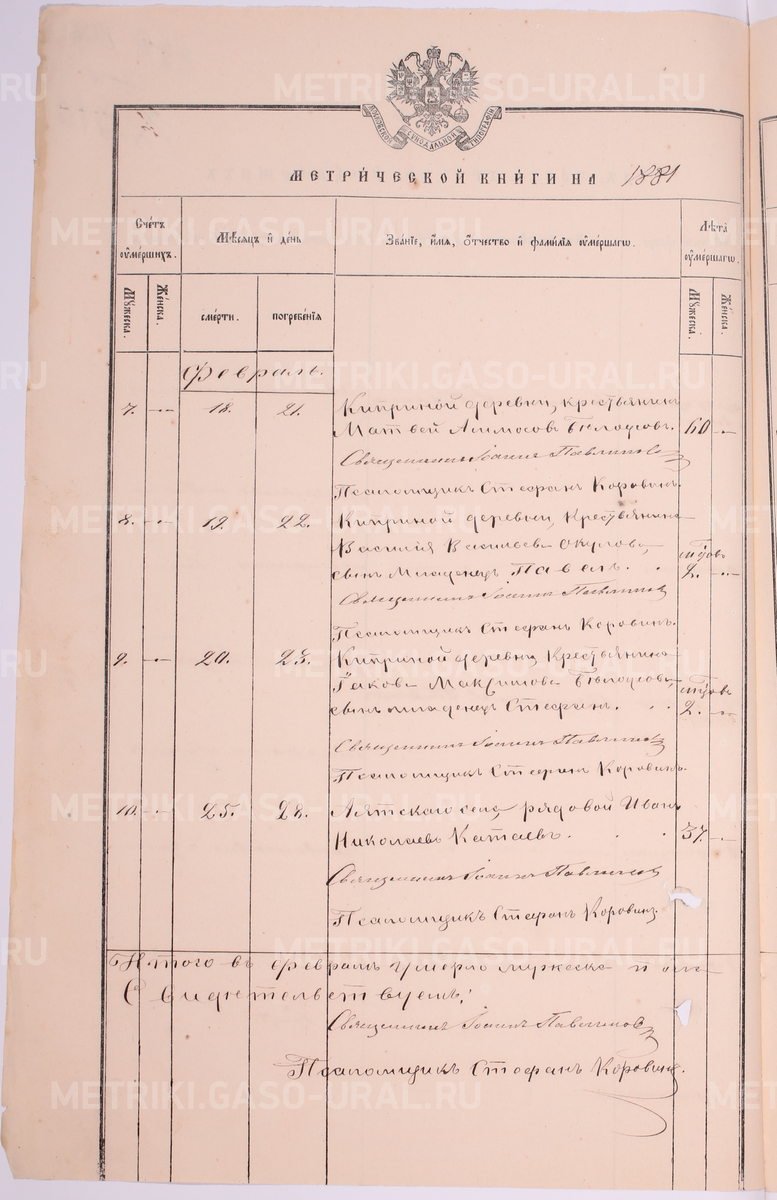 МОСКОВСКОЙ СѴНОДАЛЬНОЙ ТИПОГРАФІИ
МЕТРИ́ЧЕСКОЙ КНИ́ГИ НА 1881
Сче́тъ ᲂу҆ме́ршихъ.
Мѣ́сяцъ и҆ де́нь
Зва́нїе, и҆́мя, ѻ҆́тчество и҆ фами́лїя ᲂу҆ме́ршагѡ.
Лѣ́та ᲂу҆ме́ршагѡ.
Мꙋ́жеска.
Же́нска.
сме́рти.
погребе́нїя
Мꙋ́жеска.
Же́нска.
Февраль.
7. 18. 21. Киприной деревни, крестьянинъ
Матвей Бѣлоусовъ. 60
Священникъ Іоаннъ Павлиновъ
Псаломщикъ Стефанъ Коровинъ.
8. 19. 22. Киприной деревни, Крестьянина
Василія Васильева Окулова,
сынъ Младенецъ Павелъ. 2.
Священникъ Іоаннъ Павлиновъ
Псаломщикъ Стефанъ Коровинъ.
9. 20. 23. Киприной деревни, Крестьянина
Іакова Максимова Бѣлоусова,
сынъ младенецъ Стефанъ. 2.
Священникъ Іоаннъ Павлиновъ
Псаломщикъ Стефанъ Коровинъ.
10. 25. 28. Аятскаго села, рядовой Иванъ
Николаевъ Катаевъ. 37.
Священникъ Іоаннъ Павлиновъ
Псаломщикъ Стефанъ Коровинъ.
Итого въ Февралѣ умерло мужеска пола
Свидѣтельствуемъ:
Священникъ Іоаннъ Павлиновъ
Псаломщикъ Стефанъ Коровинъ.
METRIKI.GASO-URAL.RU